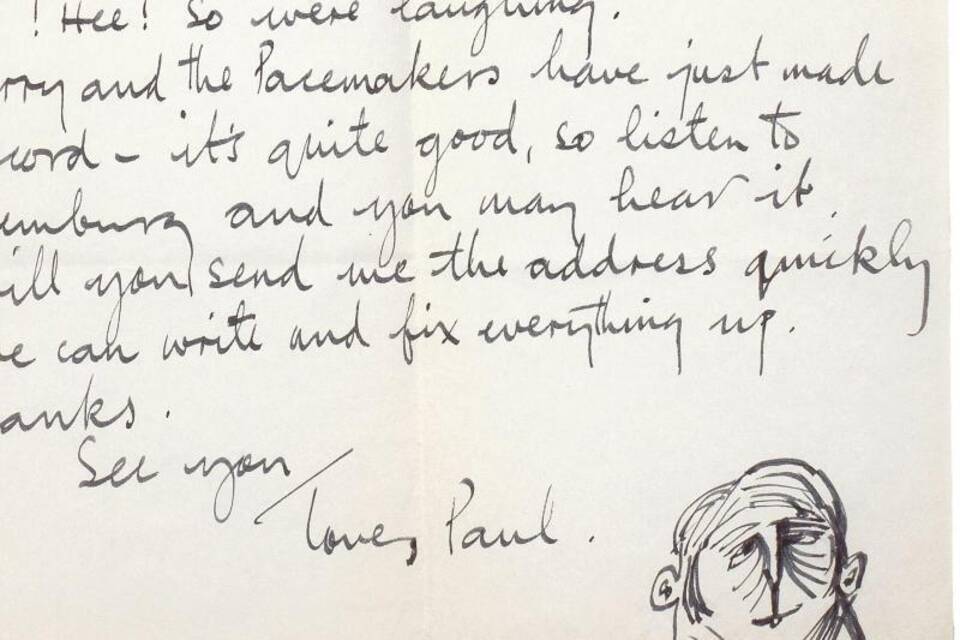 ! Hee! So were laughing.
rry and the Pacemakers have just made
cord - it's quite good, so listen to
emburg and you may hear it.
ill you send me the address quickly
e can write and fix everything up.
anks.
See you
Love, Paul.